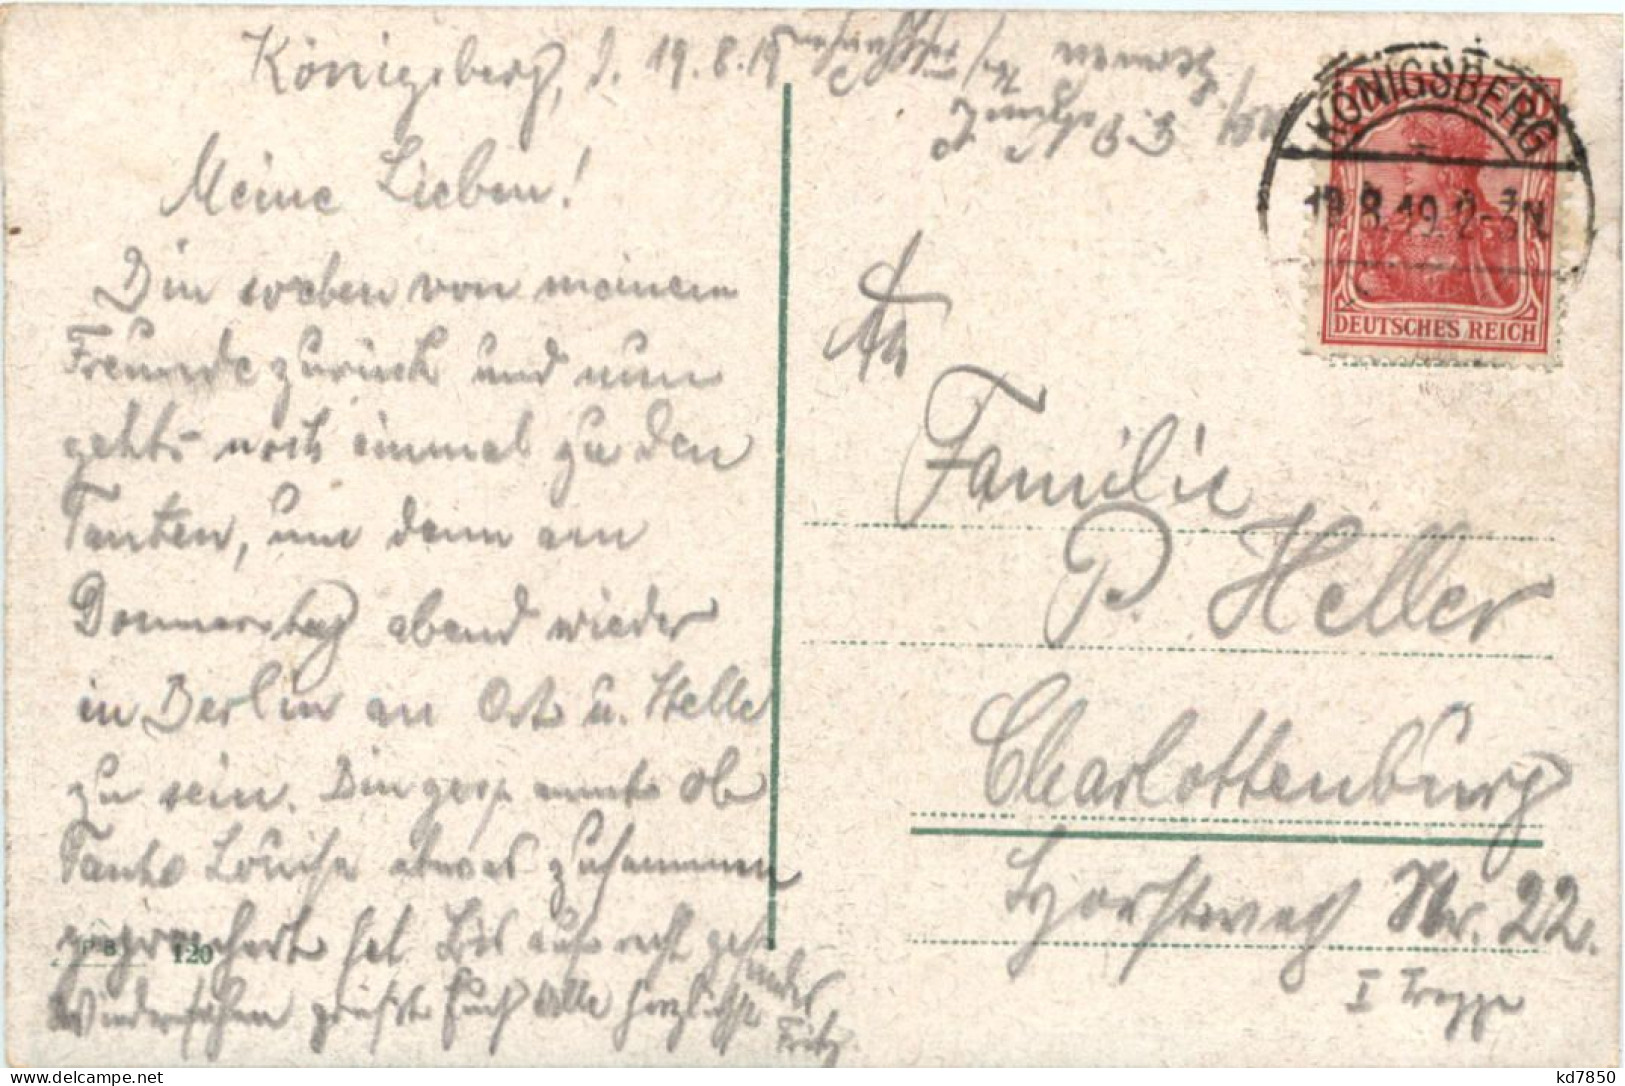 Königsberg, d. 19.8.19
Meine Lieben!
Bin soeben von meinem
Freunde zurück und nun
gehts noch einmal zu den
Tanten, um dann am
Donnerstag abend wieder
in Berlin an Ort u. Stelle
zu sein. Bin gespannt ob
Tante Louise etwas zusammen
hat. Bis auf recht gesundes
Wiedersehen grüßt Euch Alle herzlichst
Fritz
P B 120
KÖNIGSBERG
19.8.19. 2-3N
DEUTSCHES REICH
An
Familie
P. Heller
Charlottenburg
Horstweg Nr. 22.
I Treppe